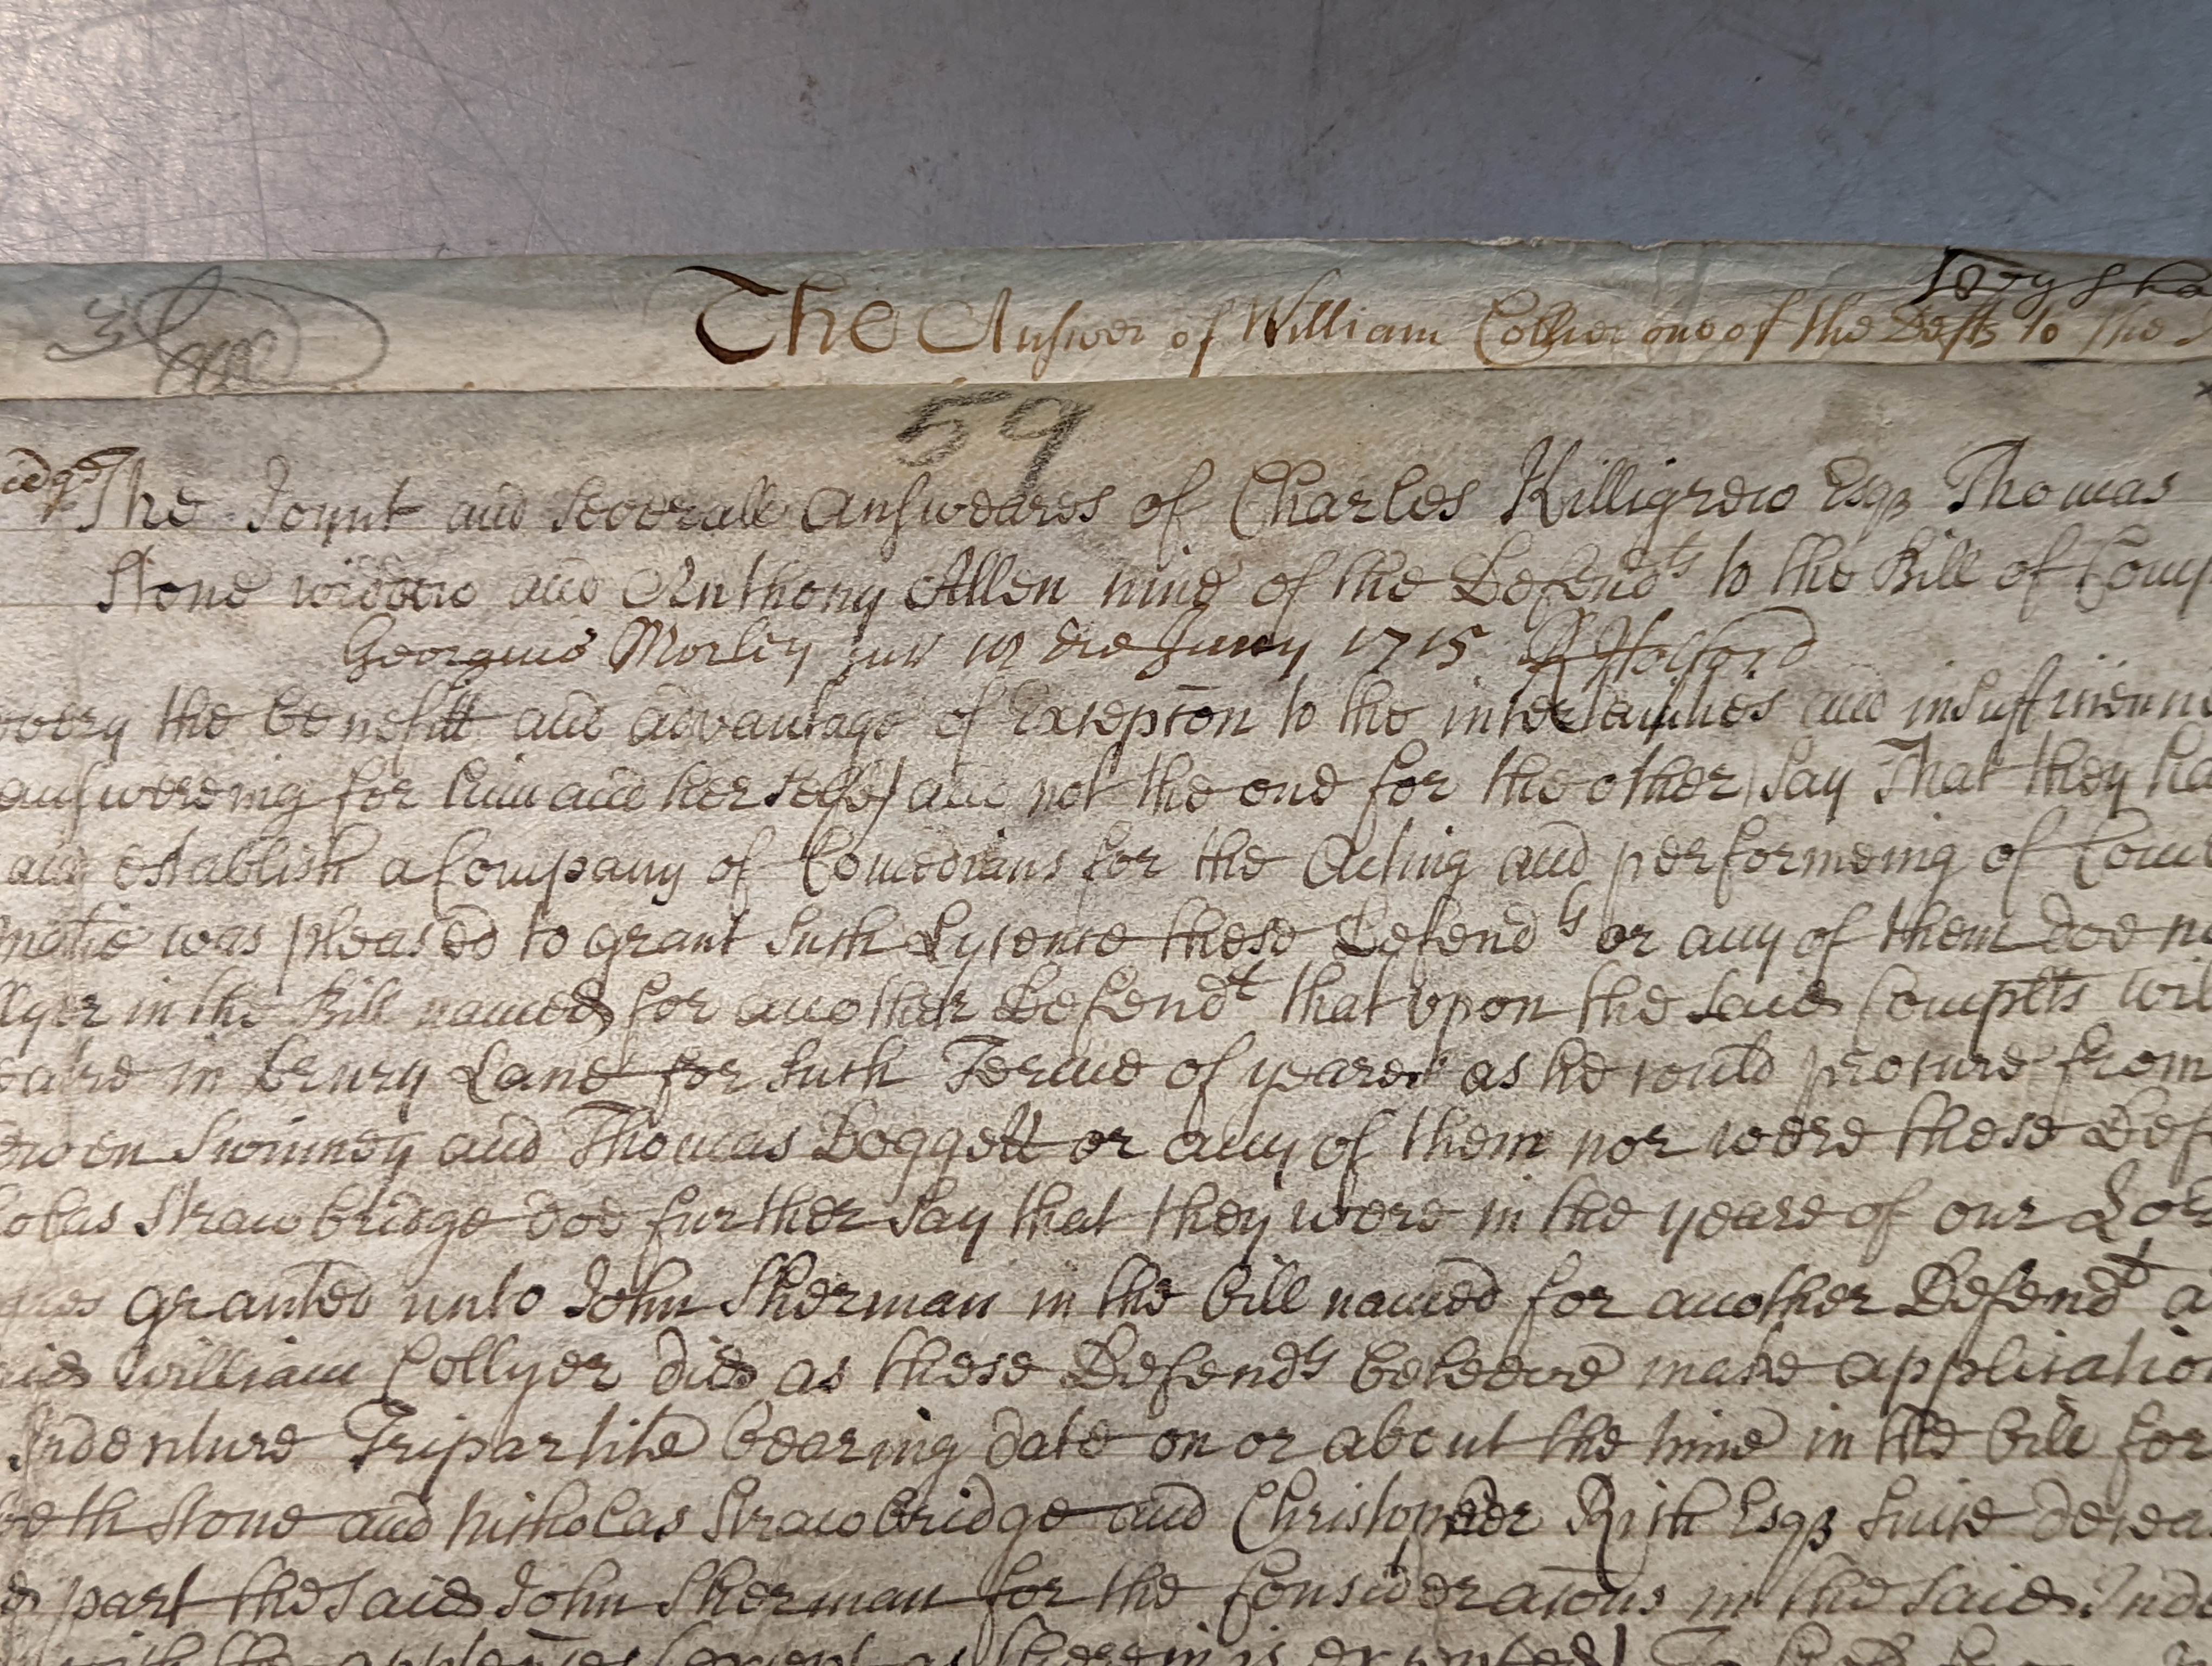 The Answer of William Collier one of the Defts to the
59
The Joynt and severall Answeares of Charles Killigrew Esqr Thomas
Stone widdow and Anthony Allen nine of the Defendts to the Bill of Comp
Georgius Morley jur die Junij 1715 R Holford
the benefitt and advantage of Excepcon to the incertainties and insufficienc
answereing for him and herselfe and not the one for the other) say That they ha
and establish a Company of Comedians for the Acting and performeing of Com
was pleased to grant such Lycence these Defendts or any of them doe no
llyer in the Bill named for another Defendt that upon the said Complts wil
in Drury Lane for such Terme of yeares as he could procure from
Swinney and Thomas Doggett or any of them nor were these Def
olas Strawbridge doe further say that they were in the yeare of our Lor
granted unto John Sherman in the bill named for another Defendt a
William Collyer did as these Defendts beleeve make applicatio
Indenture Tripartite bearing date on or about the time in the bill for
beth Stone and Nicholas Strawbridge and Christopher Rich Esqr since decea
part the said John Sherman for the consideracons in the said Inde
except as therein is excepted) To